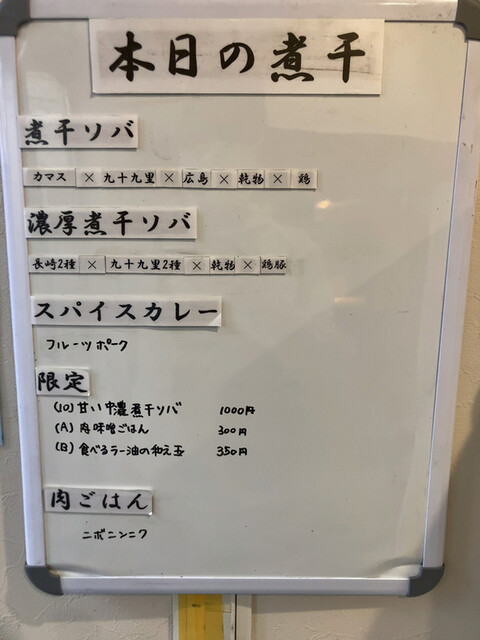 本日の煮干
煮干ソバ
カマス × 九十九里 × 広島 × 乾物 × 鶏
濃厚煮干ソバ
長崎2種 × 九十九里2種 × 乾物 × 鶏豚
スパイスカレー
フルーツポーク
限定
(10) 甘い中濃煮干ソバ 1000円
(A) 肉味噌ごはん 300円
(B) 食べるラー油の和え玉 350円
肉ごはん
ニボニンニク